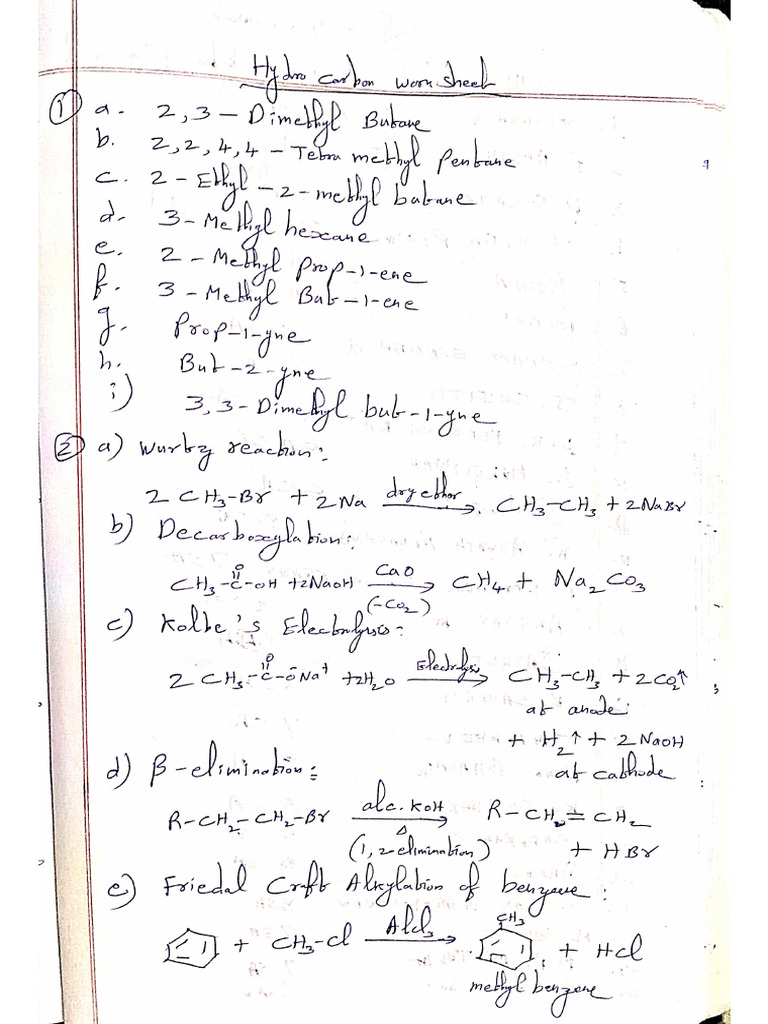 Hydro carbon worksheet
① a. 2,3-Dimethyl Butane
b. 2,2,4,4-Tetra methyl pentane
c. 2-Ethyl-2-methyl butane
d. 3-Methyl hexane
e. 2-Methyl prop-1-ene
f. 3-Methyl But-1-ene
g. Prop-1-yne
h. But-2-yne
i) 3,3-Dimethyl but-1-yne
② a) Wurtz reaction:
2 CH3-Br + 2Na dry ether → CH3-CH3 + 2NaBr
b) Decarboxylation:
CH3-C(=O)-OH + 2NaOH CaO → (-CO2) CH4 + Na2CO3
c) Kolbe's Electrolysis:
2 CH3-C(=O)-ŌNa+ + 2H2O Electrolysis → CH3-CH3 + 2CO2↑
at anode
+ H2↑ + 2NaOH
at cathode
d) β-elimination:
R-CH2-CH2-Br alc.KOH → Δ R-CH2=CH2
(1,2-elimination) + HBr
e) Friedal Craft Alkylation of benzene:
+ CH3-Cl AlCl3 → CH3 + HCl
methyl benzene